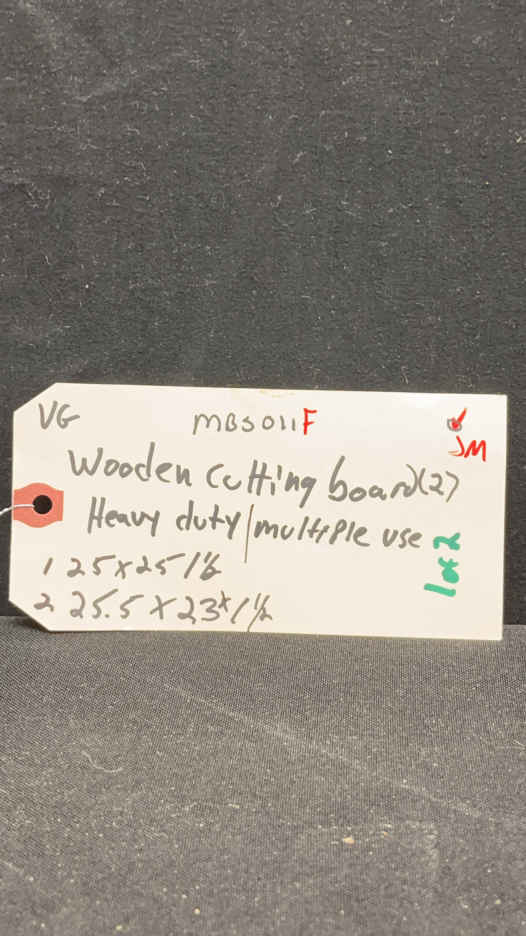 VG MBS011F
JM
Wooden Cutting board(2)
Heavy duty/multiple use
1 25x25/1½
2 25.5 x 23x/1½
lot 2